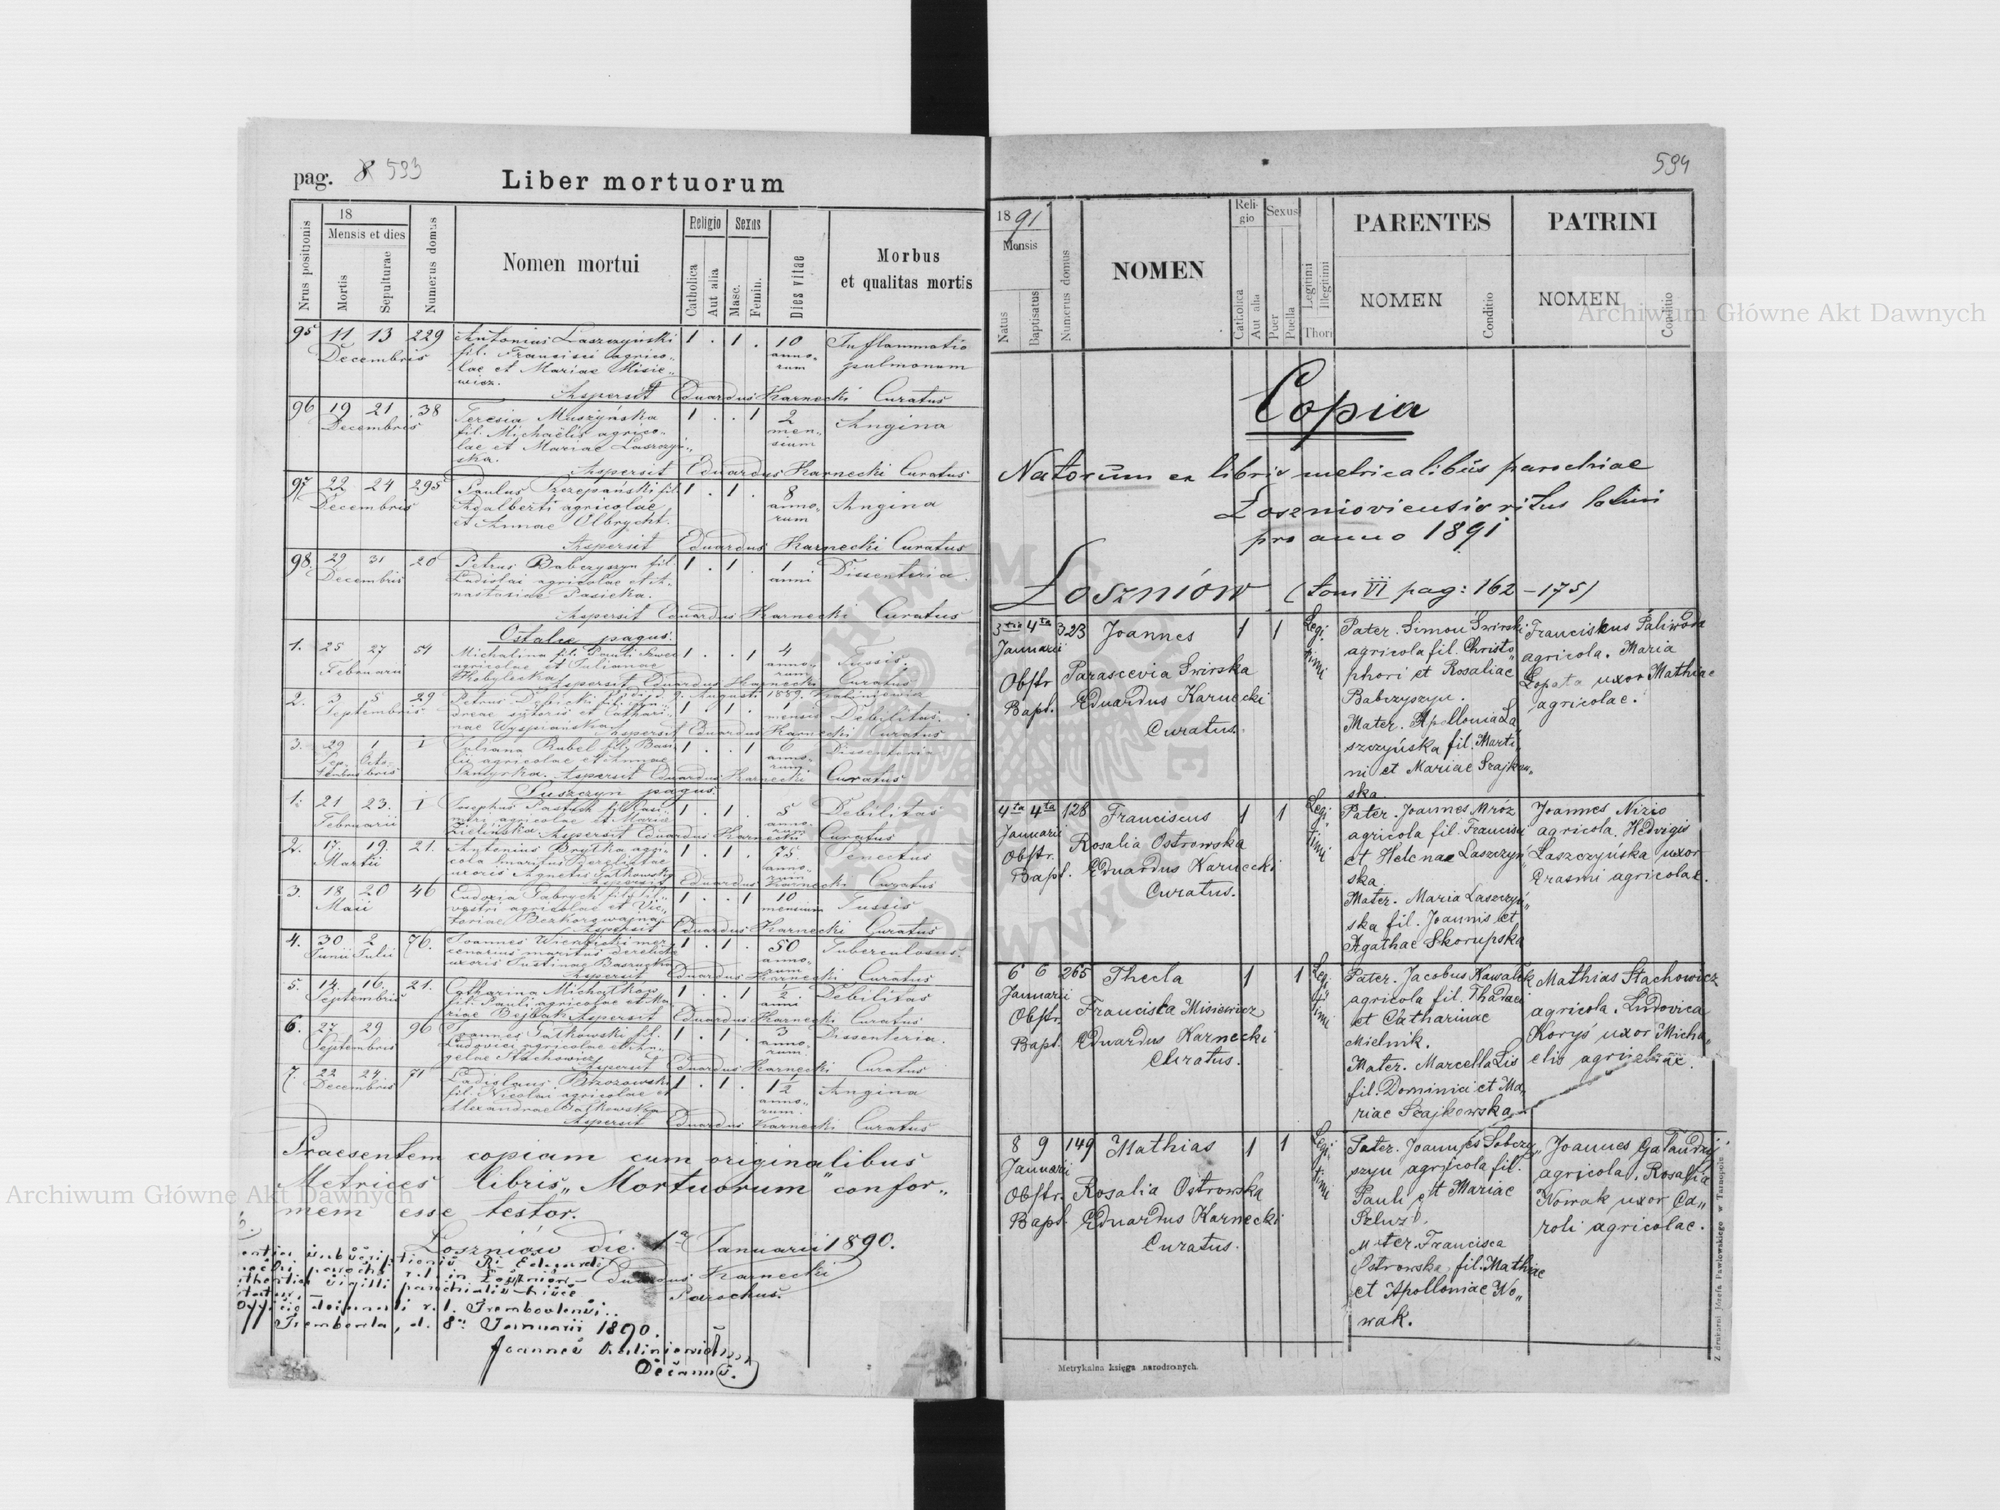 pag. 8 593
Liber mortuorum
Nrus positionis
18
Mensis et dies
Mortis
Sepulturae
Numerus domus
Nomen mortui
Religio
Catholica
Aut alia
Sexus
Masc.
Femin.
Dies vitae
Morbus
et qualitas mortis
95 11 13 229 Antonius Laszczyński 1 . 1 . 10 Inflammatio
Decembris fil. Francisci agrico- anno- pulmonum
lae et Mariae Misie- rum
wicz.
Aspersit Eduardus Karnecki Curatus
96 19 21 38 Teresia Muszyńska 1 . . 1 2 Angina
Decembris fil. Michaëlis agrico- men-
lae et Mariae Laszczyń- sium
ska.
Aspersit Eduardus Karnecki Curatus
97 22 24 295 Paulus Szczepański fil. 1 . 1 . 8 Angina
Decembris Adalberti agricolae anno-
et Annae Olbrycht. rum
Aspersit Eduardus Karnecki Curatus
98. 29 31 20 Petrus Babczyszyn fil. 1 . 1 . 1 Dissenteria.
Decembris Ladislai agricolae et A- anni
nastasiae Pasieka.
Aspersit Eduardus Karnecki Curatus
pagus.
1. 25 27 54 Michalina fil. Pauli 1 . . 1 4 Tussis.
Februarii agricolae et Julianae anno-
Kobylecka Aspersit Eduardus Karnecki Curatus
2. 3 5 29 Petrus 1 . 1 . 1 Debilitas.
Septembris mensis
Aspersit Eduardus Karnecki Curatus
3. 29 1 1 Juliana Rubel fil. Basi- 1 . . 1 6 Dissenteria
Sep- Octo- lii agricolae et Annae anno-
tembris bris Aspersit Eduardus Karnecki Curatus
Suszczyn pagus.
1. 21 23. 1 Josephus 1 . 1 . 5 Debilitas
Februarii agricolae et Maria anno-
Zielińska Aspersit Eduardus Karnecki Curatus
2. 17. 19. 21. Antonius Brytka agri- 1 . 1 . 75 Senectus
Martii cola maritus derelictae anno-
uxoris Agnetis
Aspersit Eduardus Karnecki Curatus
3. 18 20 46 Eudoxia 1 . . 1 10 Tussis
Maii agricolae et Vic- mensium
toriae
Aspersit Eduardus Karnecki Curatus
4. 30 2 76. Joannes mer- 1 . 1 . 50 Tuberculosus.
Junii Julii cenarius maritus derelictae anno-
uxoris Justinae
Aspersit Eduardus Karnecki Curatus
5. 14. 16. 21. Catharina 1 . . 1 1/2 Debilitas
Septembris fil. Pauli agricolae et Ma- anni
riae Aspersit Eduardus Karnecki Curatus
6. 27 29 96 Joannes Jatkowski fil. 1 . 1 . 3 Dissenteria.
Septembris Ludovici agricolae et An- anno-
gelae Stachowicz rum.
Aspersit Eduardus Karnecki Curatus
7. 22 24. 71 Ladislaus Brzozowski 1 . 1 . 1 1/2 Angina
Decembris fil. Nicolai agricolae et anno-
Alexandrae rum.
Aspersit Eduardus Karnecki Curatus
Praesentem copiam cum originalibus
Metrices libris „Mortuorum" confor-
mem esse testor.
Łoszniów die 1a Januarii 1890.
Eduardus Karnecki
Parochus.
Trembowla, d. 8a Januarii 1890.
Joannes
Decanus.
594
1891
Mensis
Natus
Baptisatus
Numerus domus
NOMEN
Religio
Catholica
Aut alia
Sexus
Puer
Puella
Legitimi
Illegitimi
Thori
PARENTES
NOMEN
Conditio
PATRINI
NOMEN
Conditio
Copia
Natorum ex libris metricalibus parochiae
Losznioviensis ritus latini
pro anno 1891
Łoszniów (tom VI pag: 162-175)
3tia 4ta 323 Joannes 1 1 Legi- Pater. Simon Swirski Franciskus Paliwoda
Januarii timi agricola fil. Christo- agricola. Maria
Obstr. Parascevia Swirska phori et Rosaliae Łopata uxor Mathiae
Bapt. Eduardus Karnecki Babczyszyn. agricolae.
Curatus. Mater. Apollonia La-
szczyńska fil. Marti-
ni et Mariae Szajkow-
ska.
4ta 4ta 128 Franciscus 1 1 Legi- Pater. Joannes Mróz Joannes Nizio
Januarii timi agricola fil. Francisci agricola. Hedvigis
Obstr. Rosalia Ostrowska et Helenae Laszczyń- Laszczyńska uxor
Bapt. Eduardus Karnecki ska Erasmi agricolae.
Curatus. Mater. Maria Laszczyń-
ska fil. Joannis et
Agathae Skorupska
6 6 265 Thecla 1 1 Legi- Pater. Jacobus Kawalek Mathias Stachowicz
Januarii timi agricola fil. Thadaei agricola. Ludovica
Obstr. Francisca Misiewicz et Catharinae Koryś uxor Micha-
Bapt. Eduardus Karnecki Mielnik. elis agricolae.
Curatus. Mater. Marcella Lis
fil. Dominici et Ma-
riae Szajkowska
8 9 149 Mathias 1 1 Legi- Pater. Joannes Sobczy- Joannes Galandzij
Januarii timi szyn agricola fil. agricola. Rosalia
Obstr. Rosalia Ostrowska Pauli et Mariae Nowak uxor Ca-
Bapt. Eduardus Karnecki Szluz. roli agricolae.
Curatus. Mater. Francisca
Ostrowska fil. Mathiae
et Apolloniae No-
wak.
Metrykalna księga narodzonych.
Z drukarni Józefa Pawłowskiego w Tarnopolu.
Archiwum Główne Akt Dawnych
Archiwum Główne Akt Dawnych